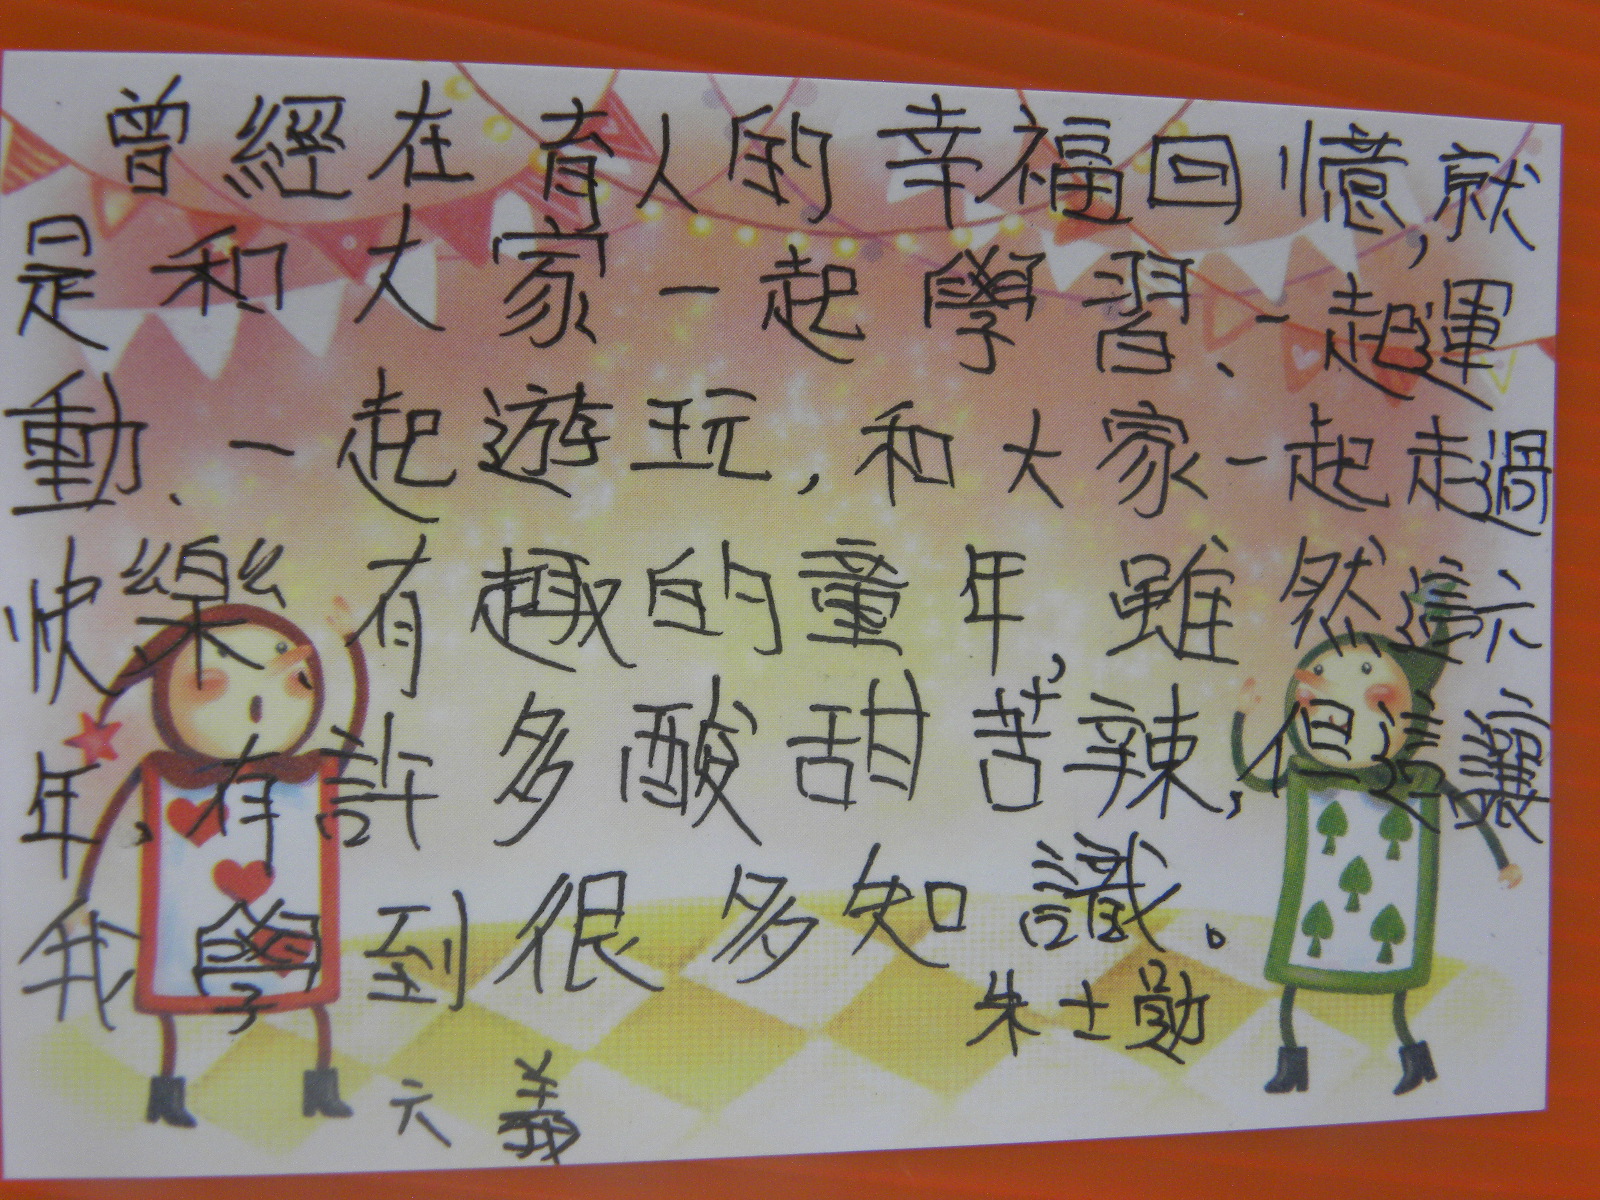 曾經在育人的幸福回憶,就
是和大家一起學習、一起運
動、一起遊玩,和大家一起走過
快樂、有趣的童年,雖然這六
年,有許多酸甜苦辣,但這讓
我學到很多知識。
朱士勛
六 義